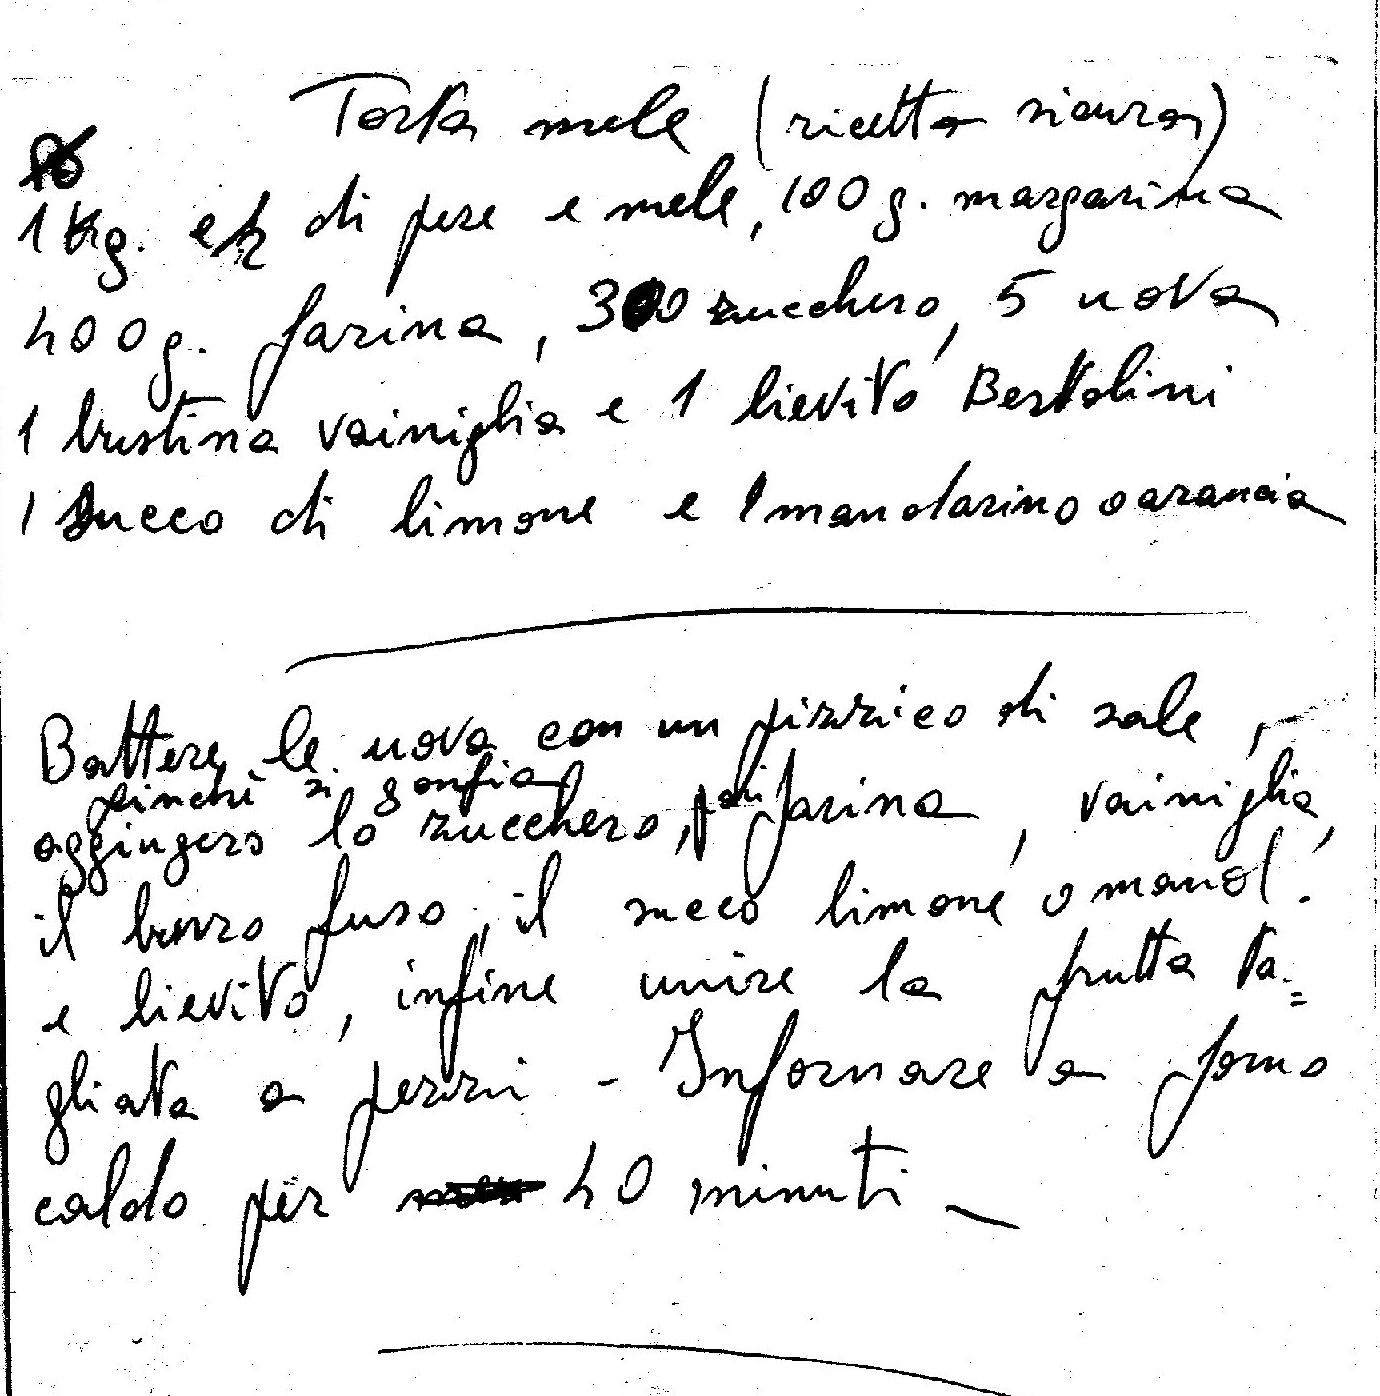 Torta mele (ricetta sicura)
1 Kg. e ½ di pere e mele, 100 g. margarina
400 g. farina, 300 zucchero, 5 uova
1 bustina vainiglia e 1 lievito Bertolini
1 succo di limone e 1 mandarino o arancia
Battere le uova con un pizzico di sale,
finché si gonfia
aggiungere lo zucchero, poi farina, vainiglia,
il burro fuso, il succo limone o mand.
e lievito, infine unire la frutta ta=
gliata a pezzi - Infornare a forno
caldo per 40 minuti -